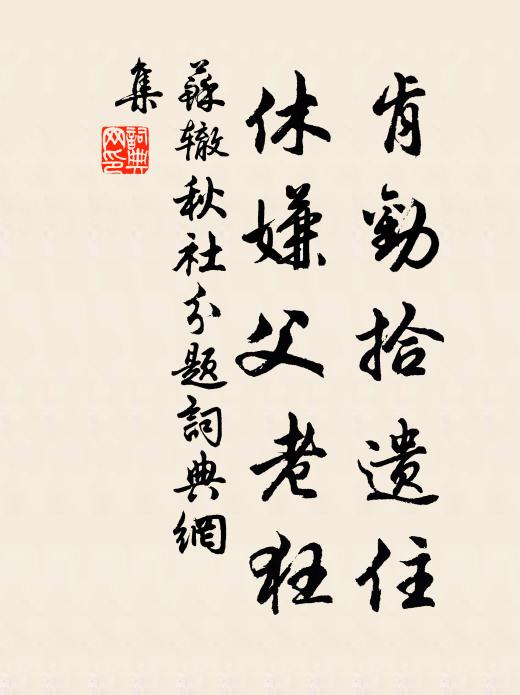 肯勸拾遺住
休嫌父老狂
蘇辙秋社分題詞典網
集
詞典
网印